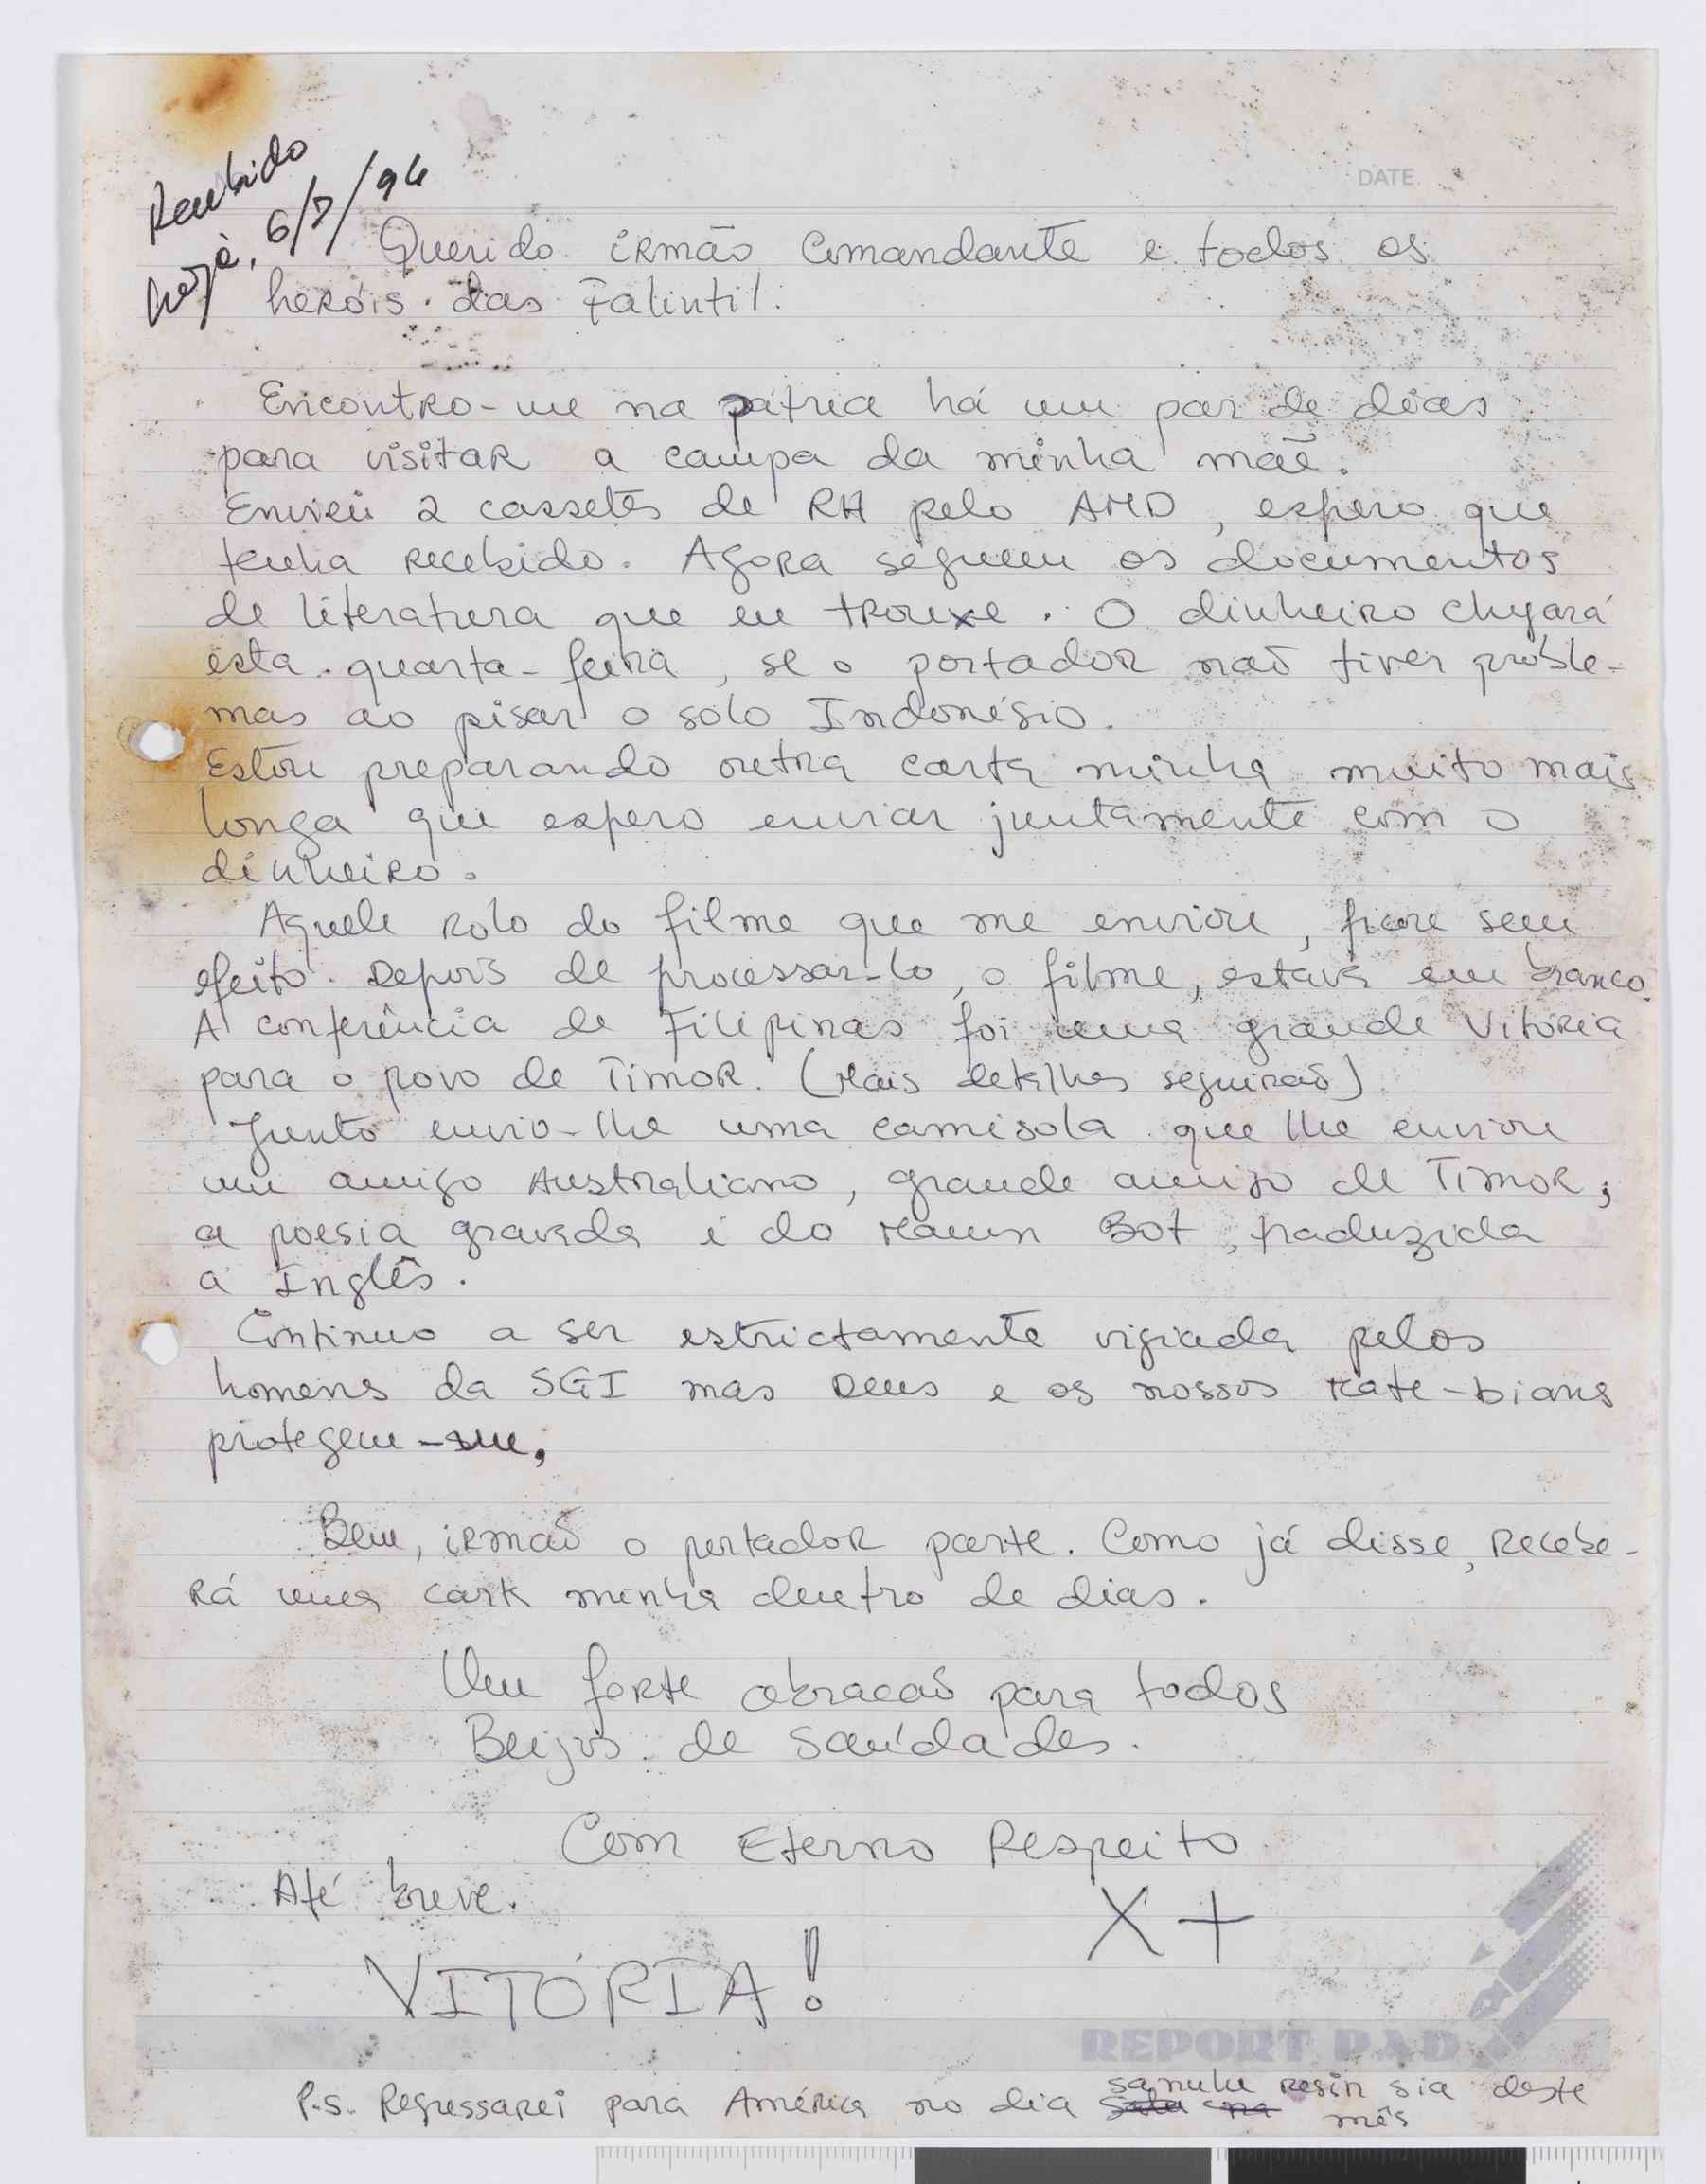 Recebido
hoje, 6/7/94
DATE
Querido irmão Comandante e todos os
heróis das Falintil.
Encontro-me na pátria há um par de dias
para visitar a campa da minha mãe.
Enviei 2 cassetes de RH pelo AMD, espero que
tenha recebido. Agora seguem os documentos
de literatura que eu trouxe. O dinheiro chegará
esta quarta-feira, se o portador não tiver proble-
mas ao pisar o solo Indonésio.
Estou preparando outra carta minha muito mais
longa que espero enviar juntamente com o
dinheiro.
Aquele rolo do filme que me enviou, ficou sem
efeito. Depois de processar-lo, o filme, estava em branco.
A conferência de Filipinas foi uma grande vitória
para o povo de Timor. (Mais detalhes seguirão)
Junto envio-lhe uma camisola que lhe enviou
um amigo Australiano, grande amigo de Timor;
a poesia gravada é do Maun Bot, traduzida
a Inglês.
Continuo a ser estrictamente vigiada pelos
homens da SGI mas Deus e os nossos mate-bians
protegem-me.
Bem, irmão o portador parte. Como já disse, recebe-
rá uma carta minha dentro de dias.
Um forte abracão para todos
Beijos de saúdades.
Com Eterno Respeito
Até breve.
X+
VITÓRIA!
REPORT PAD
P.S. Regressarei para América no dia sanulu resin sia deste
mês